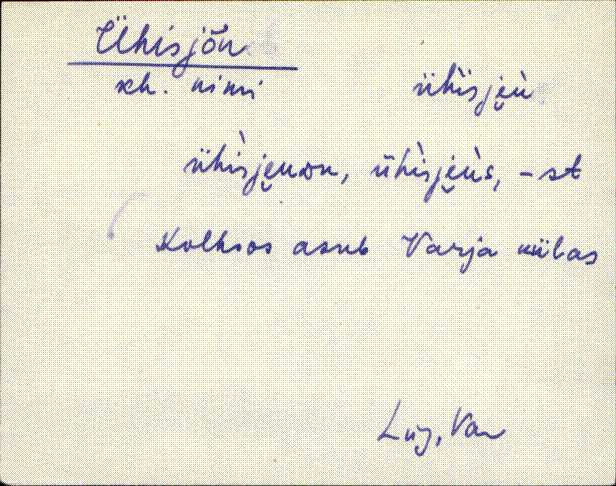 Ühisjõu
kh. nimi ühìsje̮ù
ühìsje̮uɷu, ühìsje̮ùs, -st
Kolhoos asub Varja külas
Lüg, Var